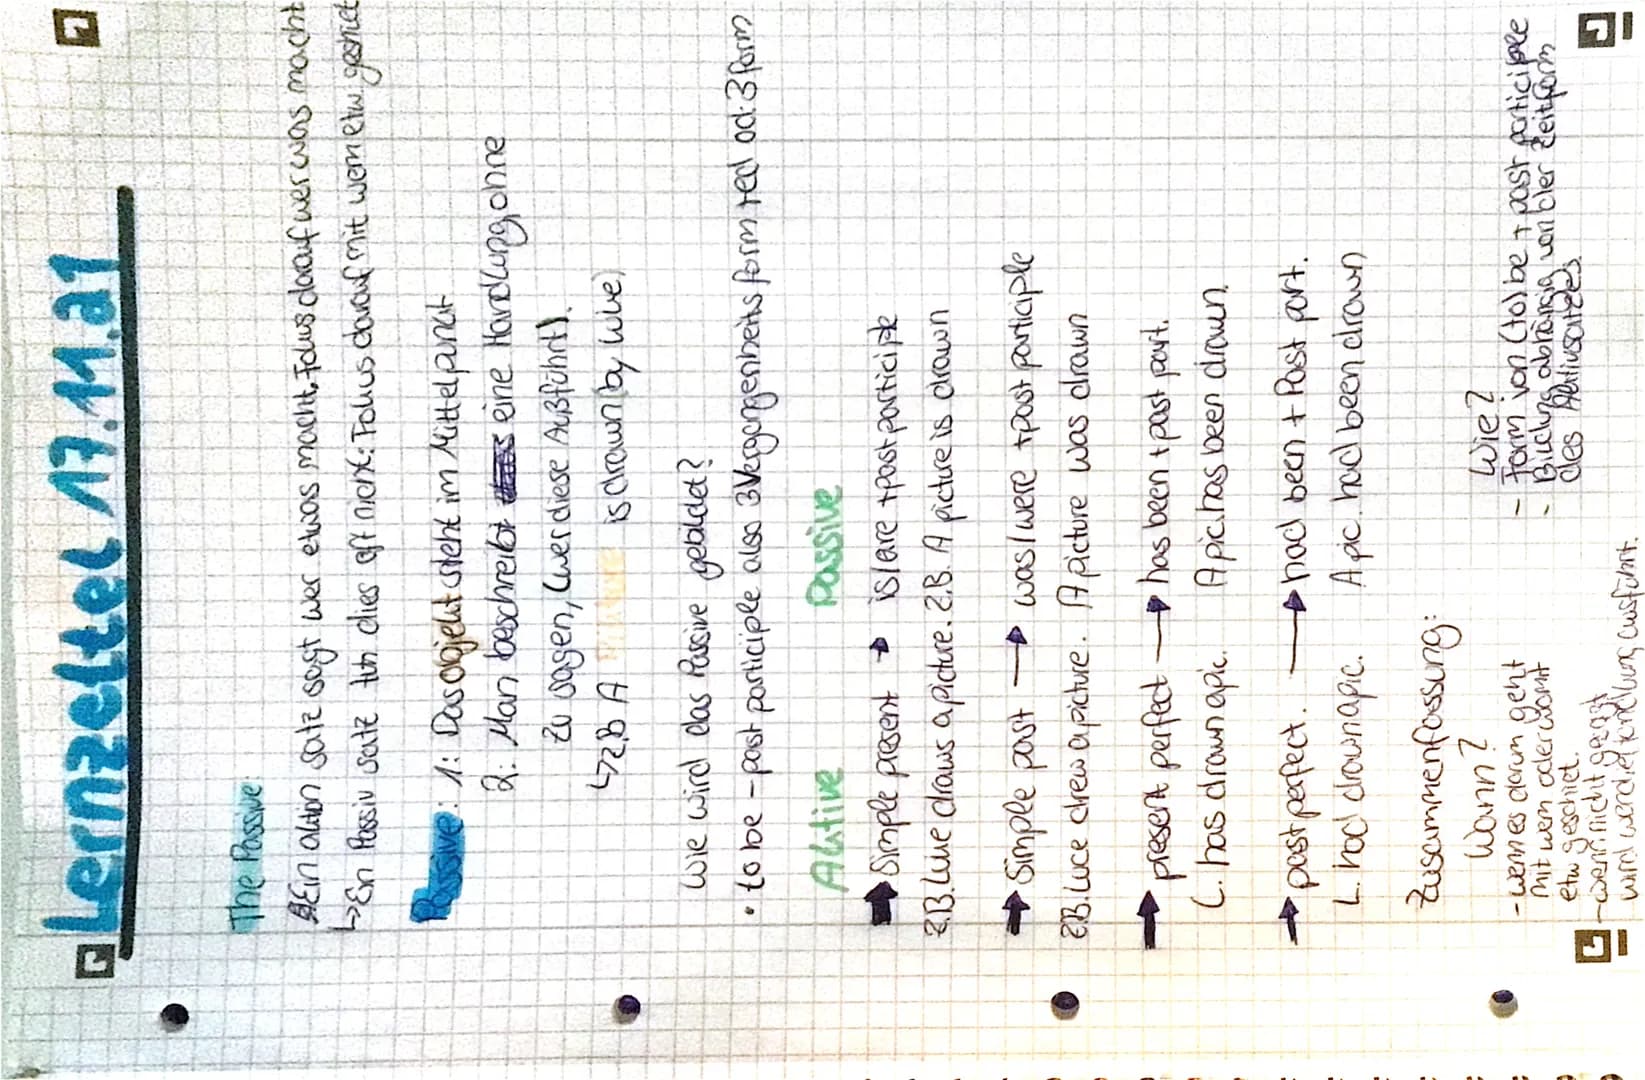 Lernzettel 17.11.21
The Passive:
Ein aktiv satz sagt wer etwas macht, Fokus darauf wer was macht
↳ Ein Passiv satz tut dies oft nicht: Fokus darauf mit wem etw. geschiet
Passive: 1: Das objekt steht im Mittelpunkt
2: Man beschreibt eine Handlung ohne
zu sagen, (wer diese Außführt).
↳ z.B A Picture is drawn (by luve)
Wie wird das Passive gebildet?
• to be - past participle also 3 Vergangenheitsform + ed od. 3 form
Aktive Passive
→ Simple present → is/are + past participle
z.B. Luve draws a picture. z.B. A picture is drawn
→ Simple past → was/were + past participle
z.B. Luce drew a picture. A picture was drawn
→ present perfect → has been + past part.
L. has drawn a pic. A pic. has been drawn.
→ past perfect. → had been + Past part.
L. had drawn a pic. A pic. had been drawn
Zusammenfassung:
Wann?
- wenn es darum geht
mit wem oder womit
etw geschiet.
- wenn nicht gesagt
wird wer die Handlung ausführt.
Wie?
- Form von (to) be + past participle
- Bildung abhängig von der Zeitform
des Aktivsatzes